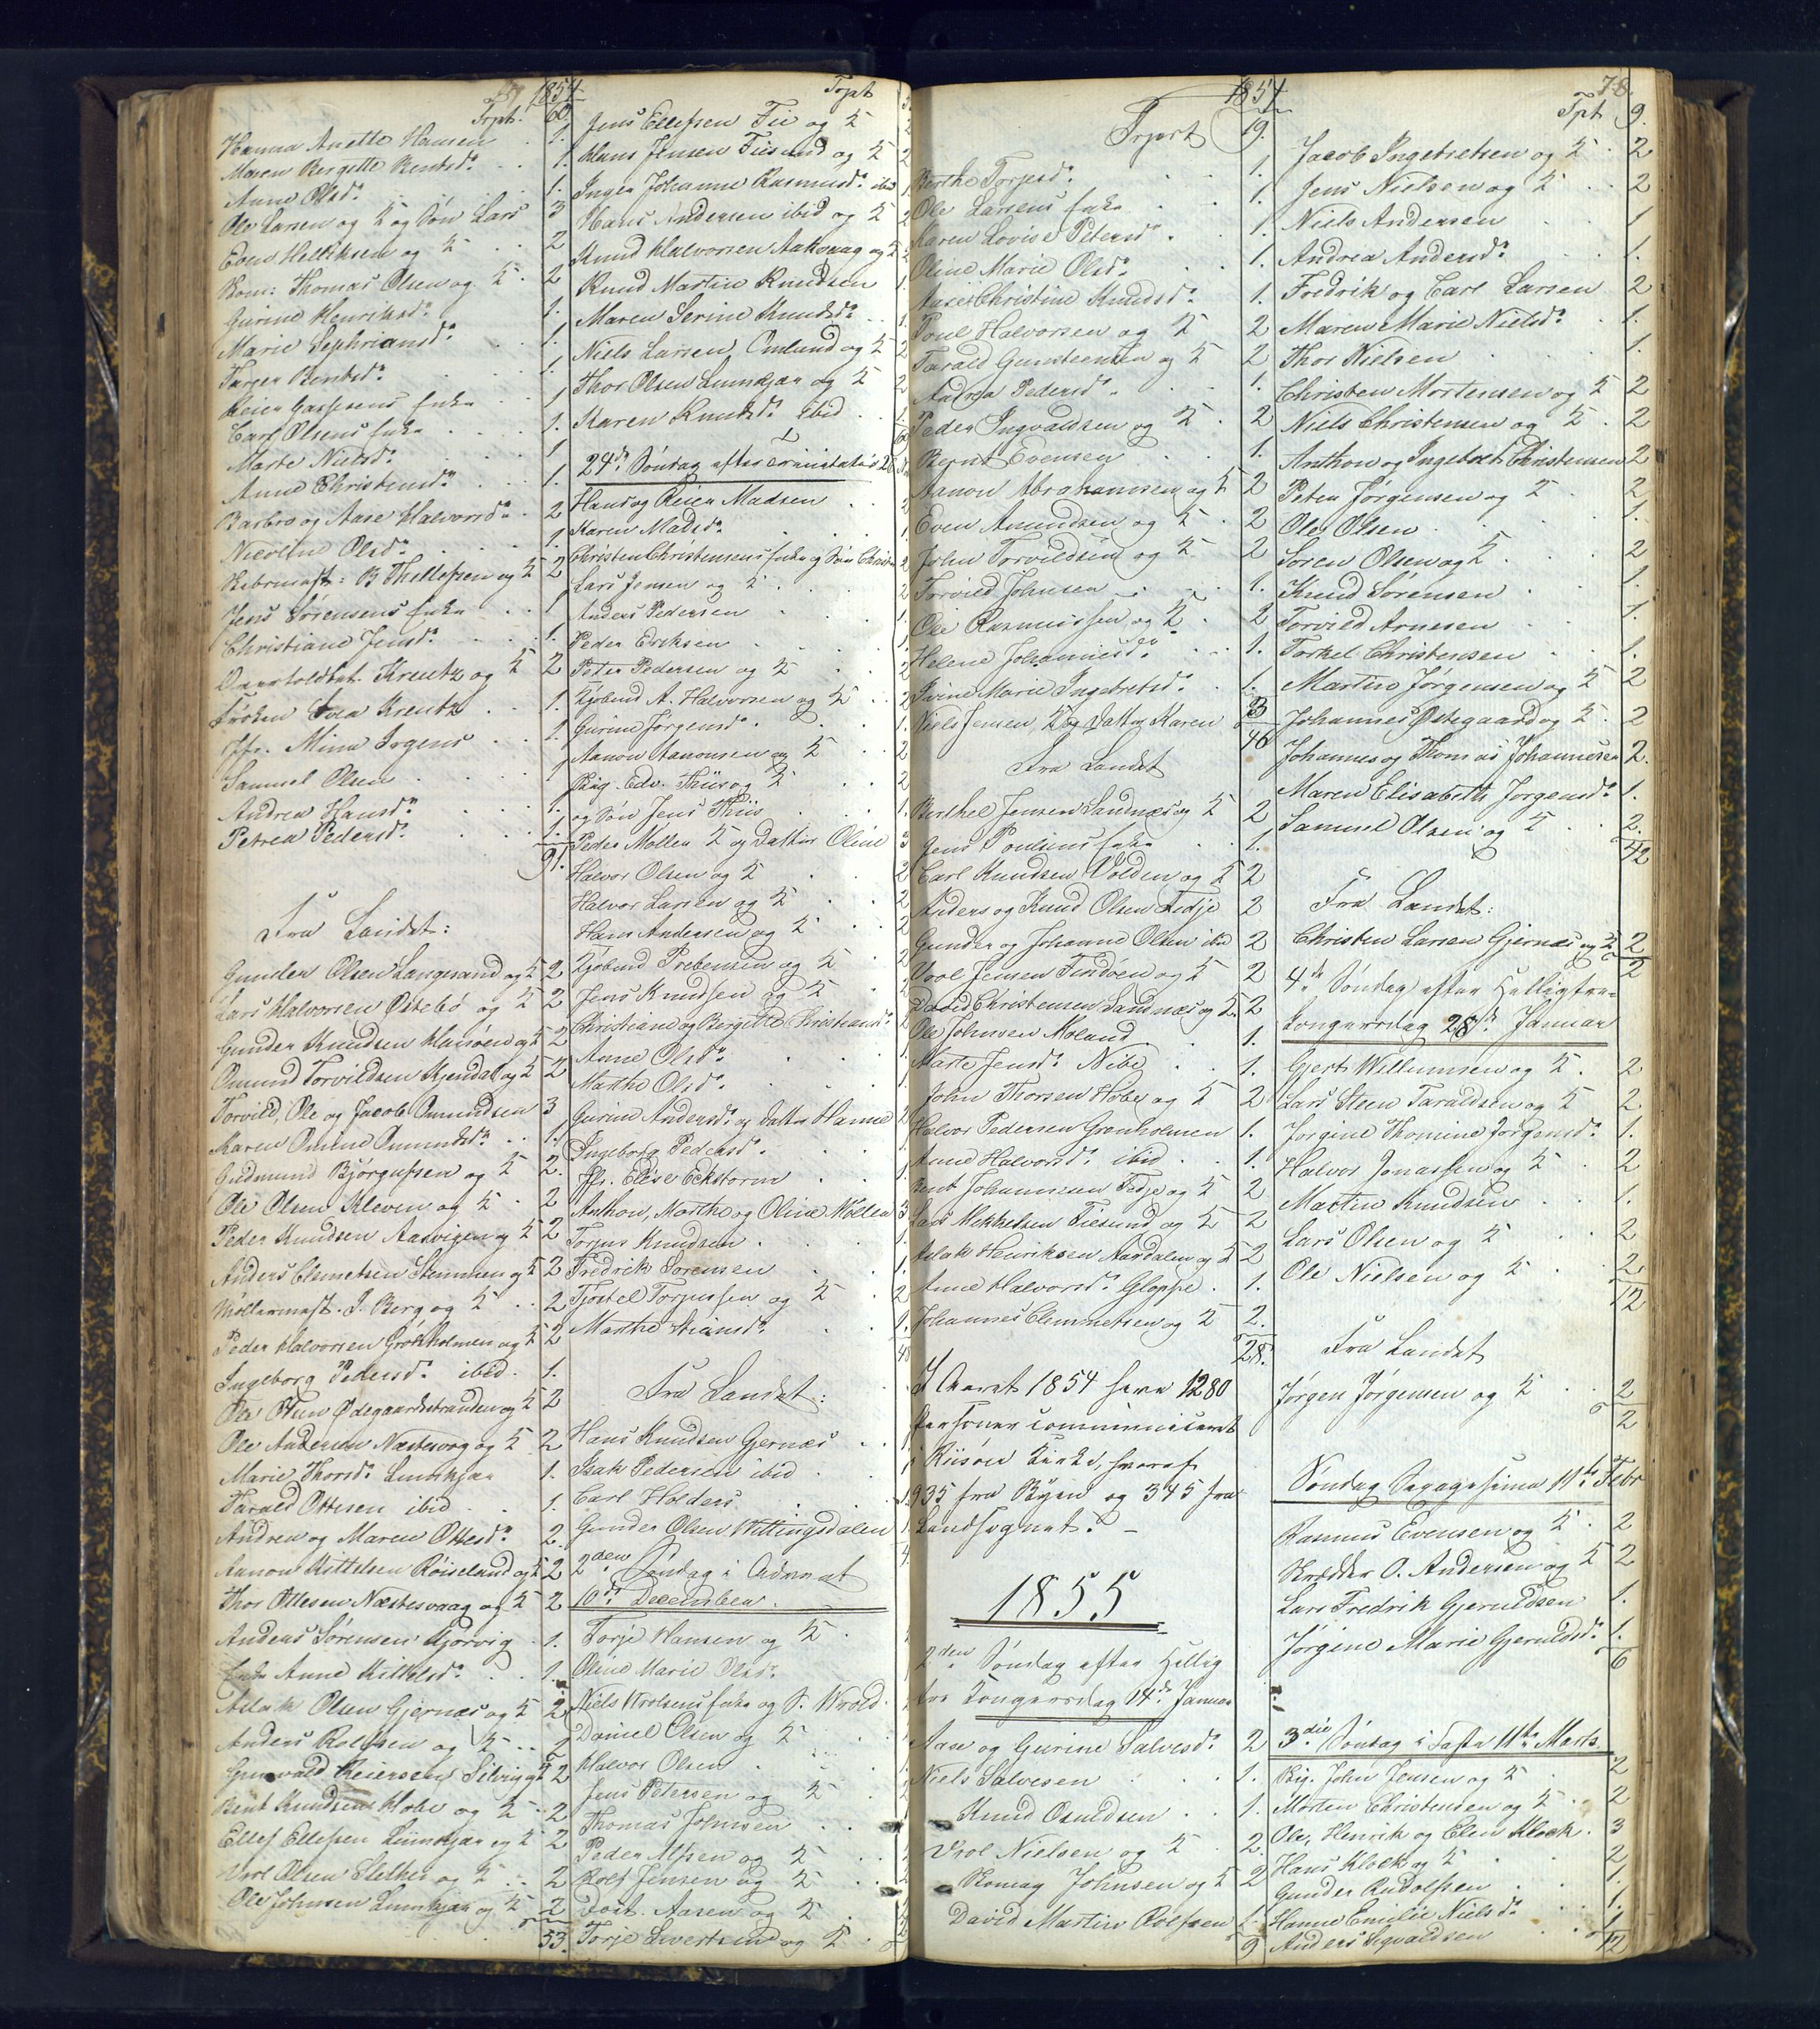 1854
Trpt. 60
Hanna Anette Hansen . 1.
Maren Bergitte Bentsd. . 1.
Anne Olsd. . 1.
Ole Larsen og K og Søn Lars 3
Even Helliksen og K . 2
Thomas Olsen og K . 2
Gurine Henriksd. 1.
Marie Zephriansd. 1.
Targer Bentsd. . 1
Reier Gasssens Enke . 1
Carl Olsens Enke . 1.
Marte Nielsd. . 1
Anne Christensd. . 1.
Barbro og Aase Halvorsd. . 2
Nicoline Olsd. . 1
B. Thellefsen og K 2
Jens Sørensens Enke . 1
Christiane Jensd. . 1.
Kreutz og K 2
Frøken Kreutz . 1.
Jfr. Mina Irgens . 1
Samuel Olsen . 1
Andrea Hansd. . 1.
Petrea Pedersd. . 1.
91.
Fra Landet:
Gunder Olsen Langesand og K 2
Lars Halvorsen Østebø og K 2
Gunder Knudsen og K 2
Omund Torvildsen Kjendal og K 2
Torvild, Ole og Jacob Omundsen 3
Karen Omine Omundsd. . 1.
Gudmund Bjørgufsen og K 2.
Ole Olsen Kleven og K . 2
Peder Knudsen Aasvigen og K 2
Anders Clemetsen Stemmen og K 2
Møllermest. J. Berg og K . 2
Peder Halvorsen og K 2
Ingeborg Pedersd. ibid . 1.
Ole Ødegaardstranden og K 2
Ole Andersen Næstesvaag og K 2
Marie Thorsd. 1.
Tarald Ottesen ibid . 1.
Andrea og Maren Ottesd. 2.
Aanon Kittelsen Røiseland og K 2
Thor Ottesen Næstesvaag og K 2
Anders Sørensen Kjørvig . 1.
Enke Anne Kittelsd. . 1.
Aslak Olsen Gjernæs og K 2
Anders Rolfsen og K . 2
Grunvald Reiersen og K 2
Bent Knudsen Hobe og K . 2
Ellef Ellefsen og K 2
Vrol Olsen og K . 2
Ole Johnsen og K 2
53.
Trpt
Jens Ellefsen Fie og K 2
Klaus Jensen Fiesund og K 2
Inger Johanne Rasmusd. ibid 1
Hans Andersen ibid og K 2
Knud Halvorsen Aakvaag og K 2
Knud Martin Knudsen 1
Maren Serine Knudsd. . 1.
Niels Larsen Omlund og K 2
Thor Olsen og K 2
Karen Knudsd. ibid . 1
24de Søndag efter Trinitatis 26
Hans og Reier Madsen . 2
Karen Madsd. . 1
Christen Christensens Enke og Søn Christen 2
Lars Jensen og K . 2
Anders Pedersen . 1.
Peder Eriksen . 1.
Peter Pedersen og K . 2
Kjøbmd A. Halvorsen og K . 2
Gurine Jørgensd. . 1.
Aanon Aanonsen og K . 2
Edv. Thiis og K . 2
og Søn Jens Thiis . 1.
Peder Møller K og Datter Oline 3
Halvor Olsen og K . 2
Halvor Larsen og K . 2
Hans Andersen og K . 2
Kjøbmd Prebensen og K . 2
Jens Knudsen og K . 2
Christiane og Bergitte Christiansd. 2
Anne Olsd. . 1
Marthe Olsd. . 1.
Gurine Andersd. og Datter Hanne 2
Ingeborg Pedersd. . 1
Jfr. Elise Eckstorm . 1
Anthon, Marthe og Oline Møller 3
Torjus Knudsen . 1.
Fredrik Sørensen . 1.
Tjostel Torjussen og K . 2
Marthe . 1.
48
Fra Landet:
Hans Knudsen Gjernæs . 1
Isak Pedersen ibid . 1
Carl Holders . 1
Gunder Olsen Wittingsdalen 1
4
2den Søndag i Advent
10de December.
Torje Hansen og K .
Oline Marie Olsd.
Niels Wrolsens Enke og S. Wrold .
Daniel Olsen og K .
Halvor Olsen .
Jens Petersen og K .
Thomas Johnsen .
Peder Alfsen og K .
Rolf Jensen og K .
Aasen og K .
Torje og K .
1854
Trpt 19.
Berthe Torjesd. . 1.
Ole Larsens Enke . 1.
Karen Lovise Petersd. . 1.
Oline Marie Olsd. . 1.
Christine Knudsd. 1.
Poul Halvorsen og K 2
Tarald Gunsteensen og K 2
Andrea Pedersd. . 1.
Peder Ingvaldsen og K . 2
Bernt Evensen . 1.
Aanon Abrahamsen og K 2
Even Amundsen og K . 2
John Torvildsen og K 2
Torvild Johnsen . 1.
Ole Rasmussen og K . 2
Helene Johannesd. . 1.
Marie Ingebretsd. . 1.
Niels Jensen, K og Datter Karen 3
46
Fra Landet
Berthel Jensen Sandnæs og K 2
Jens Poulsens Enke . 1.
Carl Knudsen Volden og K 2
Anders og Knud Olsen Fedje 2
Gunder og Johanne Olsen ibid 2
Vrol Jensen Findøen og K 2
David Christensen Sandnæs og K 2
Ole Johnsen Moland . 1.
Marte Jensd. Nibe . 1.
John Thorsen Hobe og K 2
Halvor Pedersen Grønholmen 1.
Anne Halvorsd. ibid . 1.
Bent Johannesen Fedje og K 2
Lars Fiesund og K 2
Aslak Henriksen Aardalen og K 2
Anne Halvorsd. Gloppe . 1.
Johannes Clemmetsen og K 2.
28.
I Aaret 1854 have 1280
Personer communiceret
i Riisøer Kirke, hvoraf
935 fra Byen og 345 fra
Landsognet. –
1855
2den Søndag efter Hellig
tre Kongersdag 14de Januar
Aase og Gurine Salvesd. 2
Niels Salvesen . 1.
Knud Osuldsen . 1.
Vrol Nielsen og K . 2.
Johnsen og K 2
David Martin Rolfsen 1.
9
78.
Tpt 9.
Jacob Ingebretsen og K . 2
Jens Nielsen og K . 2
Niels Andersen . 1
Andrea Andersd. . 1.
Fredrik og Carl Larsen 2
Maren Marie Nielsd. . 1.
Thor Nielsen . 1.
Christen Mortensen og K 2
Niels Christensen og K . 2
Anthon og Ingeborg Christensen 2
Peter Jørgensen og K . 2
Ole Olsen . 1.
Søren Olsen og K . 2
Knud Sørensen . 1.
Torvild Arnesen . 1.
Torkel Christensen . 1.
Martin Jørgensen og K 2
Johannes Østegaard og K . 2
Johannes og Thomas Johannesen 2.
Maren Elisabeth Jørgensd. 1.
Samuel Olsen og K . 2.
42
Fra Landet:
Christen Larsen Gjernæs og K 2
2
4de Søndag efter Helligtre-
kongersdag 28de Januar
Gjert Willumsen og K . 2
Lars Steen Taraldsen og K 2
Jørgine Thomine Jørgensd. 1.
Halvor Jonassen og K . 2
Martin Knudsen . 1.
Lars Olsen og K . 2
Ole Nielsen og K . 2
12
Fra Landet
Jørgen Jørgensen og K . 2
2
Søndag Sexagesima 11te Febr
Rasmus Evensen og K . 2
Skredder O. Andersen og K 2
Lars Fredrik Gjeruldsen 1.
Jørgine Marie Gjeruldsd. 1.
6
3die Søndag i Faste 11te Marts
John Jensen og K . 2
Morten Christensen og K . 2
Ole, Henrik og Elen Klock . 3
Hans Klock og K . 2
Gunder Rudolfsen . 1.
Hanne Emilie Nielsd. . 1.
Anders Ingvaldsen . 1
12